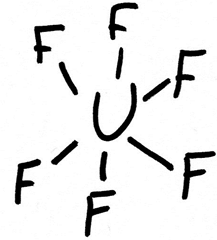 F
F
F
U
F
F
F